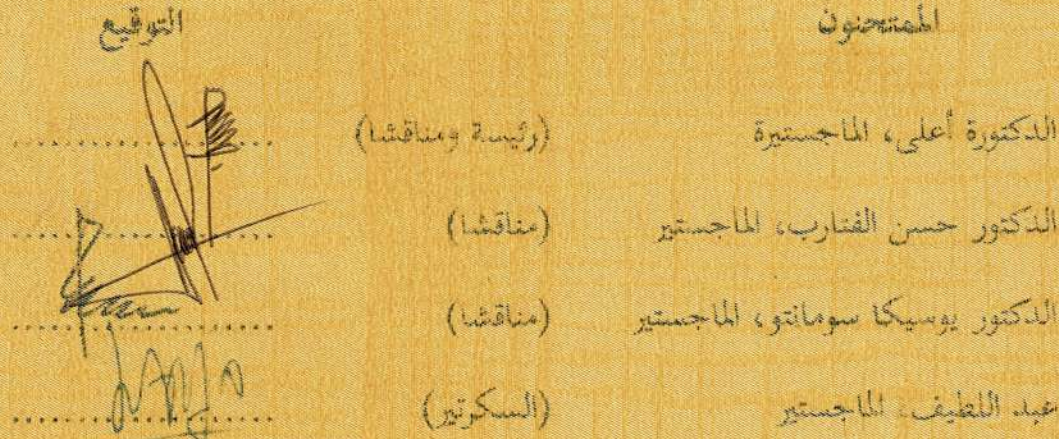 الممتحنون التوقيع
الدكتورة أعلى، الماجستيرة (رئيسة ومناقشا) ....................
الدكتور حسن الفنارب، الماجستير (مناقشا) ....................
الدكتور يوسيكا سومانتو، الماجستير (مناقشا) ....................
عبد اللطيف، الماجستير (السكرتير) ....................